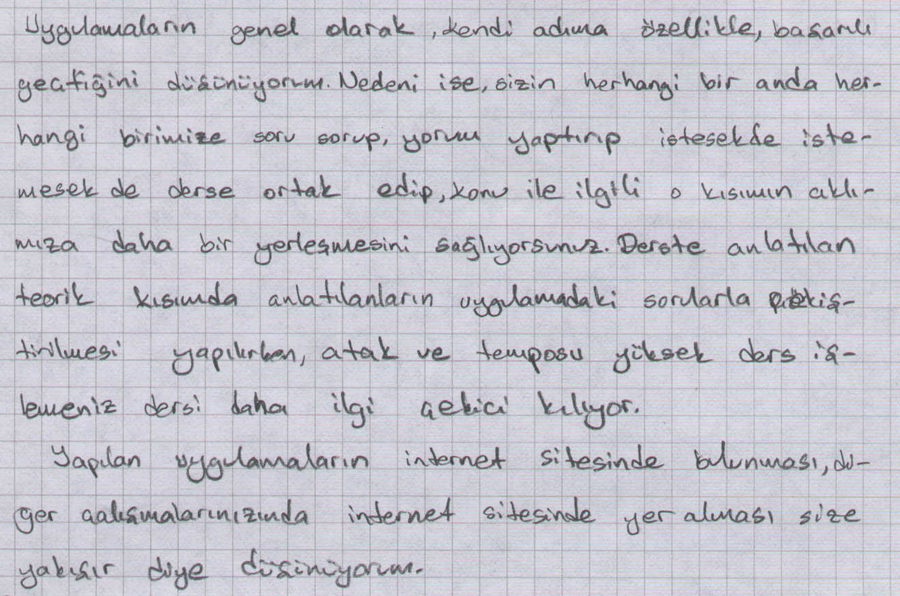 Uygulamaların genel olarak, kendi adıma özellikle, başarılı
geçtiğini düşünüyorum. Nedeni ise, sizin herhangi bir anda her-
hangi birimize soru sorup, yorum yaptırıp istesekde iste-
mesek de derse ortak edip, konu ile ilgili o kısımın aklı-
mıza daha bir yerleşmesini sağlıyorsunuz. Derste anlatılan
teorik kısımda anlatılanların uygulamadaki sorularla pekiş-
tirilmesi yapılırken, atak ve temposu yüksek ders iş-
lemeniz dersi daha ilgi çekici kılıyor.
Yapılan uygulamaların internet sitesinde bulunması, di-
ğer çalışmalarınızında internet sitesinde yer alması size
yakışır diye düşünüyorum.